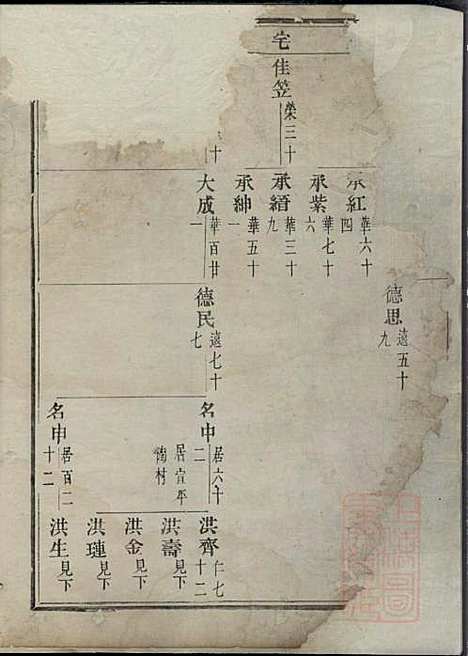 宅
佳笠 榮三十
承紅 華六十四
承紫 華七十六
承縉 華三十九
承紳 華五十一
大成 華百廿一
德思 遠五十九
德民 遠七十七
名中 居六十二
居宣平
村
名申 居百二十二
洪齊 仁七十二
洪壽 見下
洪金 見下
洪璉 見下
洪生 見下